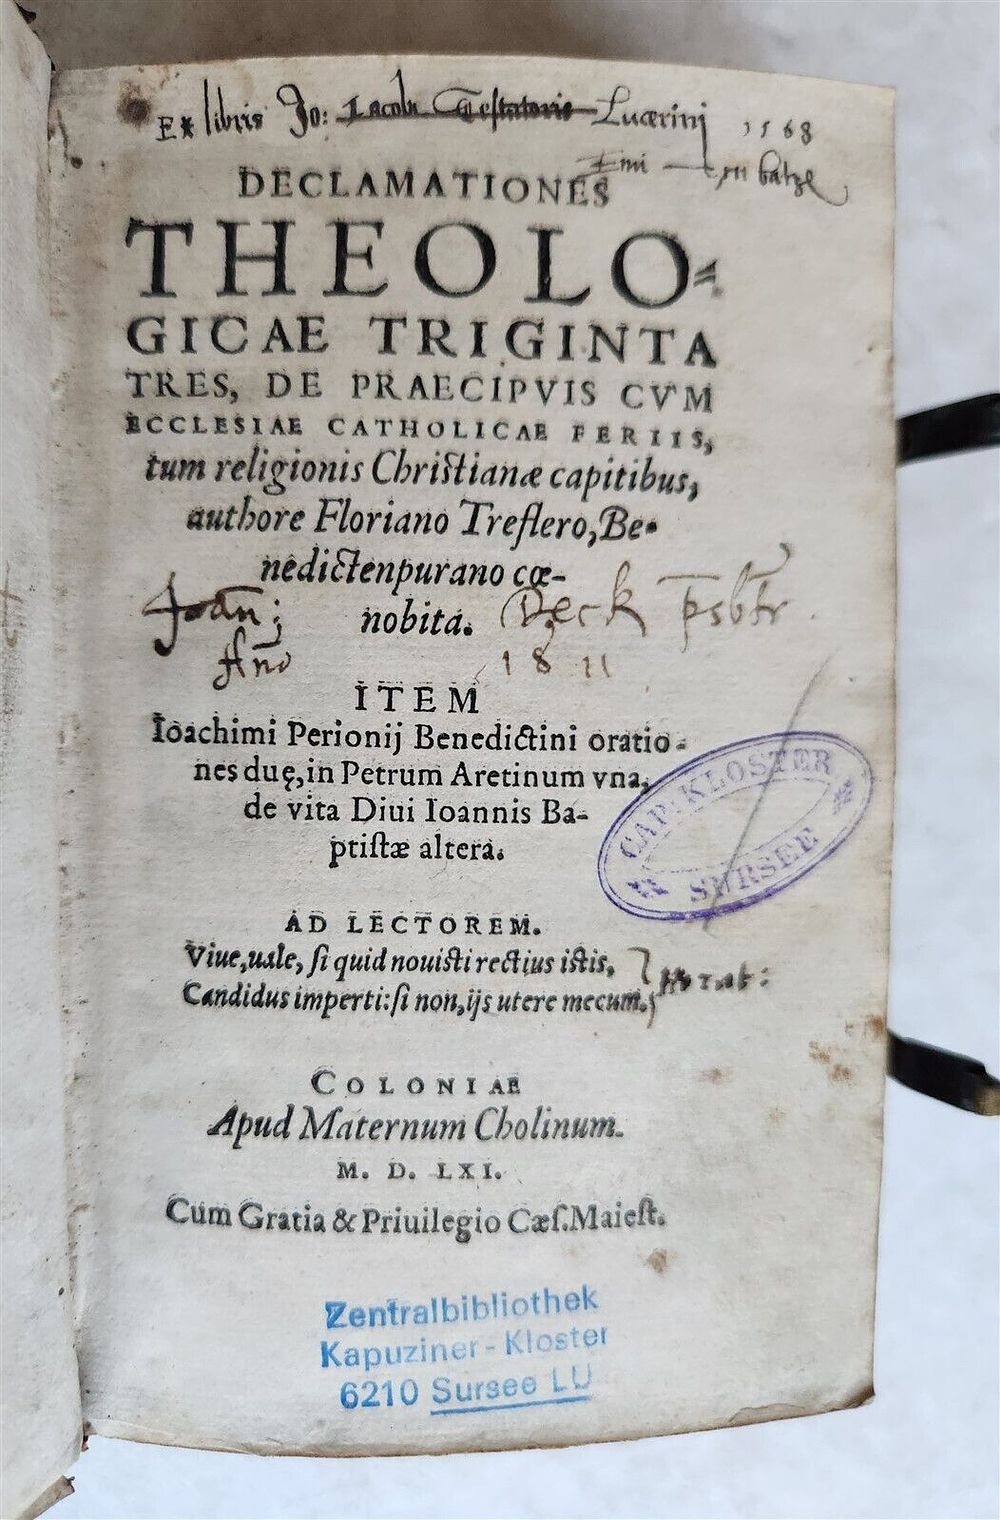 Ex libris Jo: Iacobi Lucerini 1568
Emi batze
DECLAMATIONES
THEOLO-
GICAE TRIGINTA
TRES, DE PRAECIPVIS CVM
ECCLESIAE CATHOLICAE FERIIS,
tum religionis Christianæ capitibus,
authore Floriano Treflero, Be-
nedictenpurano cœ-
nobita.
Joan: Deck psbtr
Año 1811
ITEM
Ioachimi Perionij Benedictini oratio-
nes duę, in Petrum Aretinum vna,
de vita Diui Ioannis Ba-
ptiſtæ altera.
CAP: KLOSTER
SURSEE
AD LECTOREM.
Viue, uale, ſi quid nouisti rectius istis,
Candidus imperti: ſi non, ijs utere mecum.
Horat:
COLONIAE
Apud Maternum Cholinum.
M. D. LXI.
Cum Gratia & Priuilegio Cæſ. Maieſt.
Zentralbibliothek
Kapuziner-Kloster
6210 Sursee LU